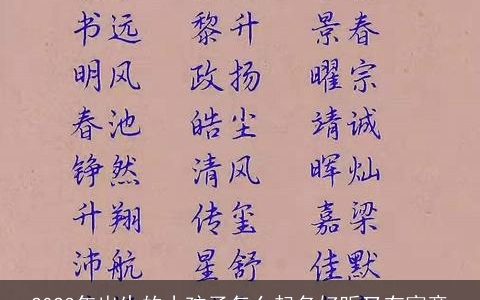 书远 黎升 景春
明风 政扬 曜宗
春池 皓尘 靖诚
铮然 清风 晖灿
升翔 传玺 嘉梁
沛航 星舒 佳默
年出生的小孩子怎么起名好听又有寓意